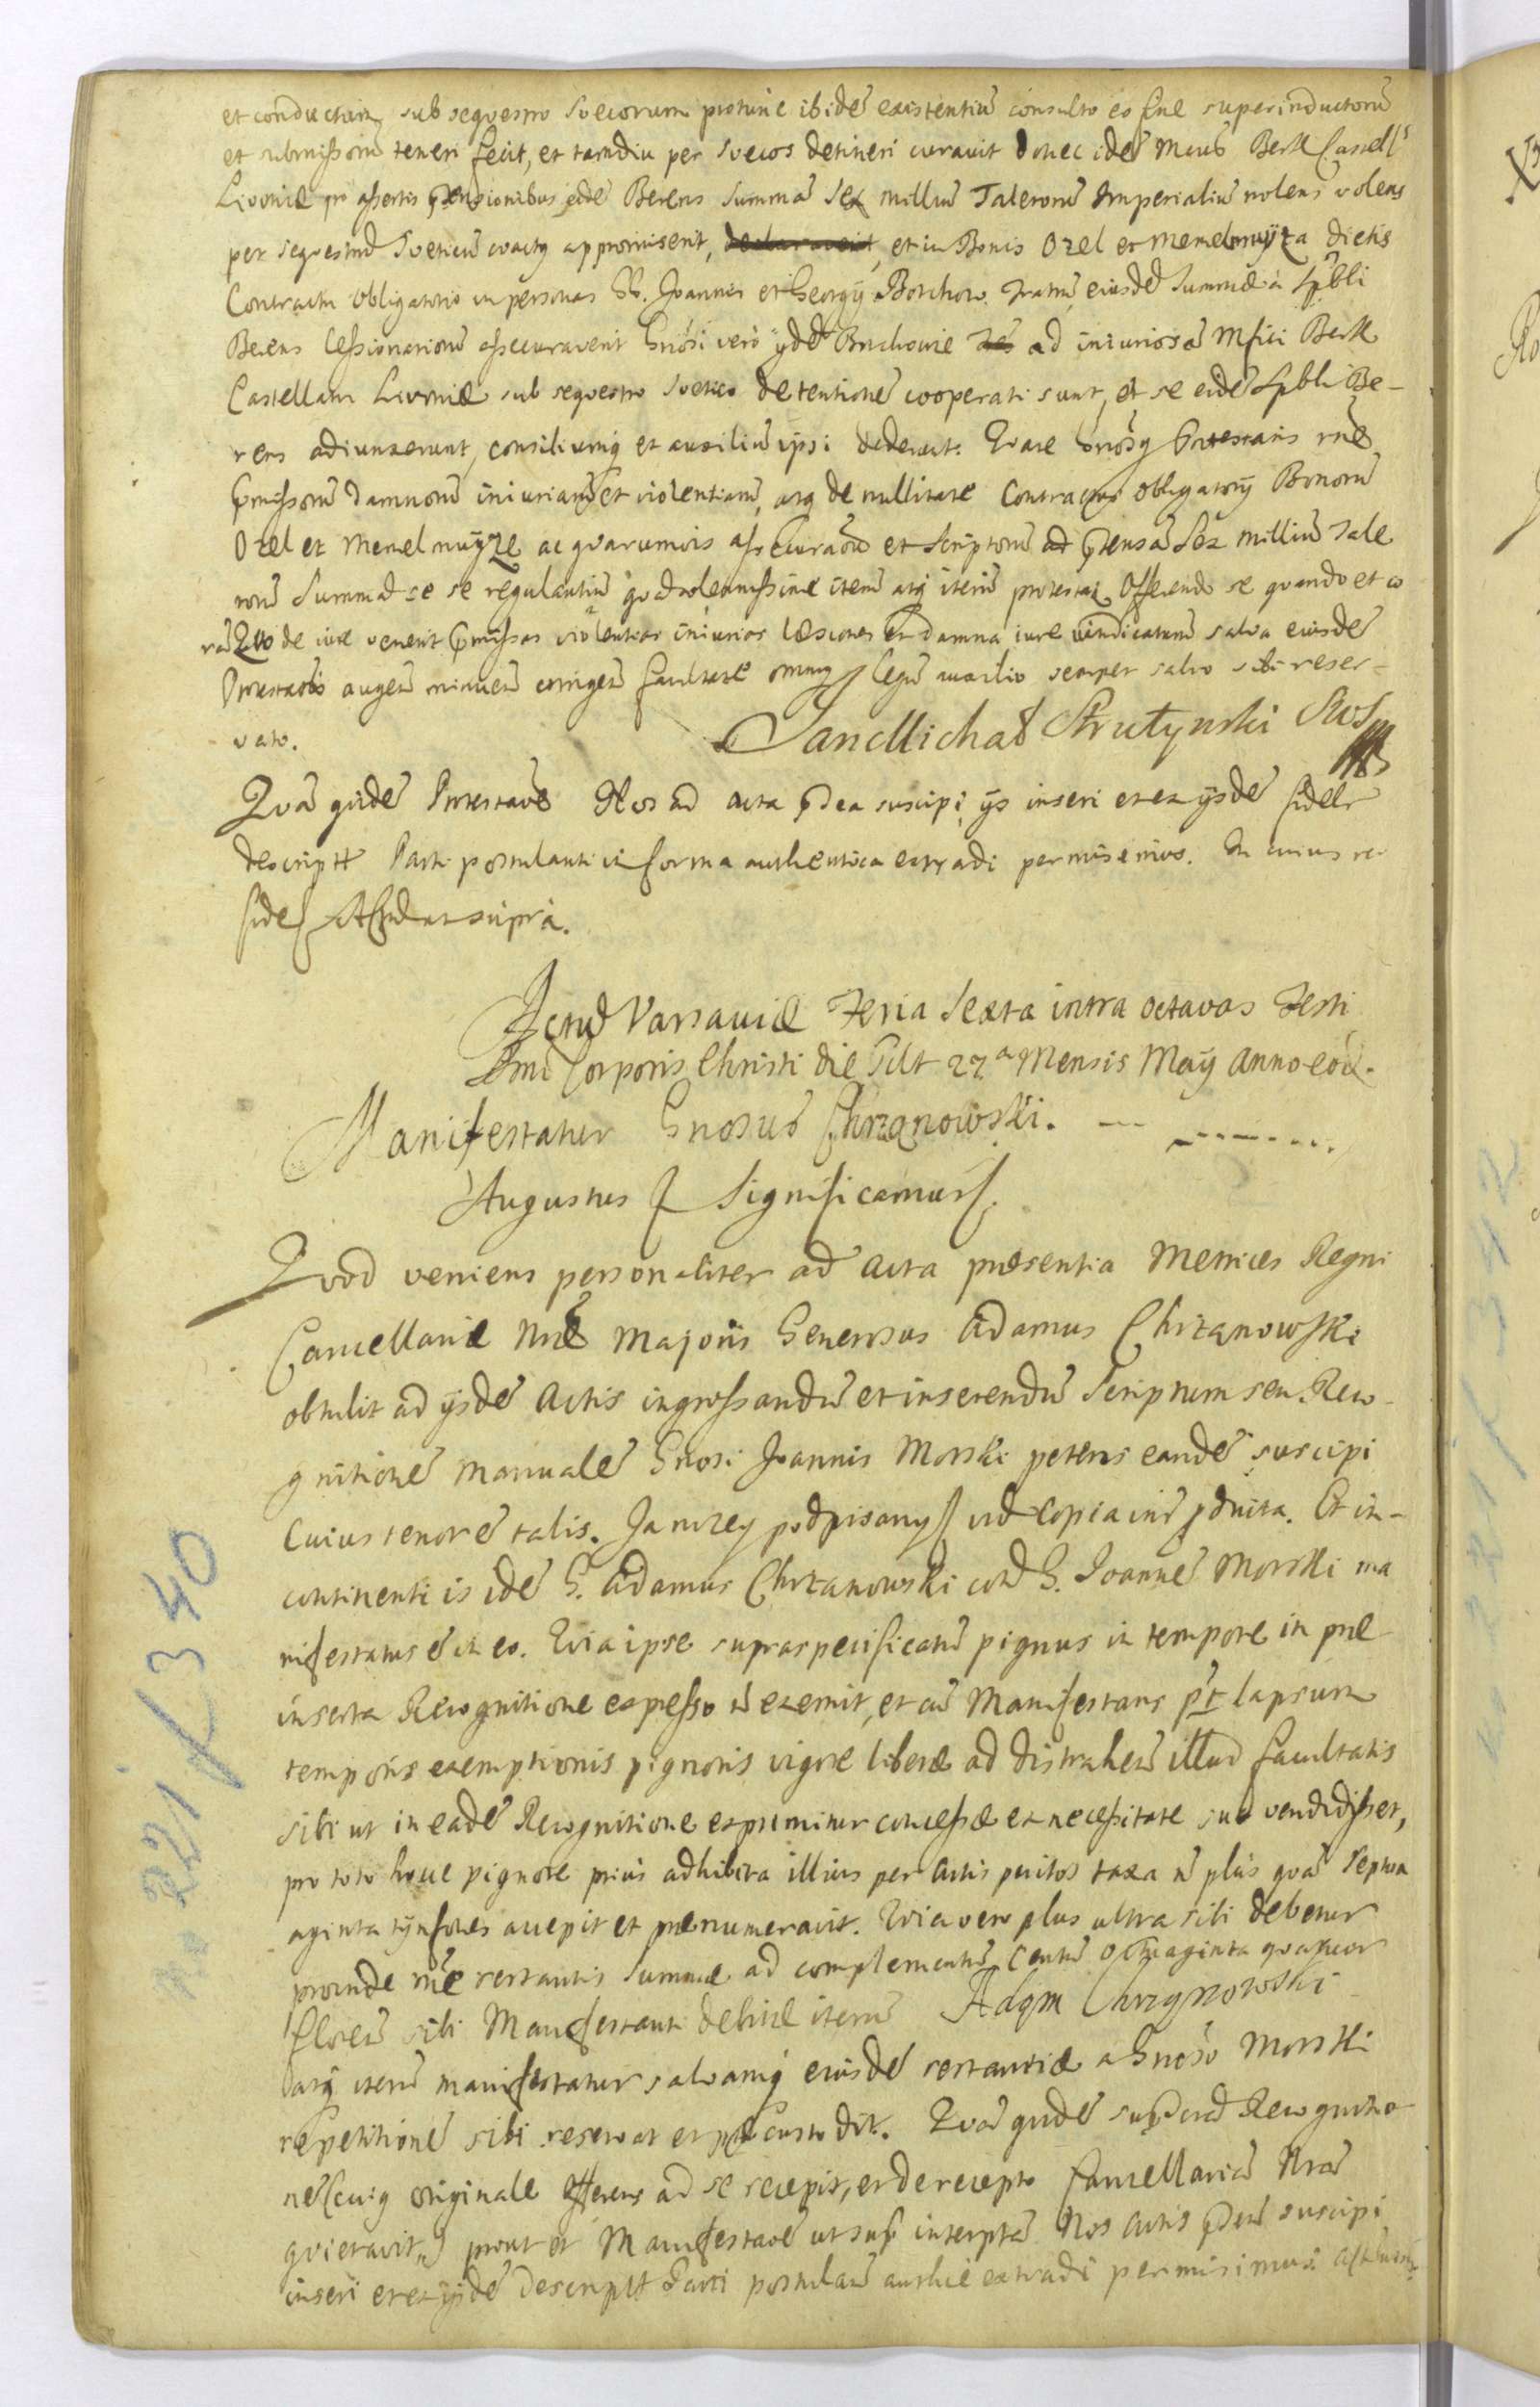 et conductam sub sequestro Suecorum protunc ibidē existentiū consulto eo fine superinductorū
et submissorū teneri fecit, et tamdiu per Suecos detineri curavit donec idē Mcus Berk Castell
Livoniæ pro assertis prætensionibus eidē Berens Summā Sex milliū Talerorū Imperialiū nolens volens
per sequestrū Sveticū coactg appromiserit, et in Bonis Ozel et Memelmuyza dictis
Contractu Obligatorio in personas GG. Joannis et Georgÿ Borchow Fratrū eiusdē Summæ à Spbli
Berens Cessionariorū assecuraverit Gnosi verò ÿdē Borchowie ad iniuriosā Mfici Berk
Castellani Livoniæ sub sequestro Svetico detentionē cooperati sunt, et se eidē Spbli Be-
rens adiunxerunt, consiliumq et auxiliū ipsi dederunt. Quare Gnosg Protestans rne
præmissorū damnorū iniuriarū et violentiarū, atq de nullitate Contractus Obligatorÿ Bonorū
Ozel et Memelmuyze ac quarumvis assecuraōū et Scriptorū ad prætensā Sex milliū Tale
rorū Summā se se regulantiū qvā solennissime iterū atq iterū protestat Offerendo se quando et co
rā Quo de iure venerit præmissas violentias iniurias læsiones et damna iure vindicaturū salva eiusdē
Protestaōis augen̄ minuen̄ corrigen̄ facultate omniq legū auxilio semper salvo sibi reser-
vato. Jan Michał Strutynski Stos
Quā quidē Protestaōē Nos ad acta prædca suscipi, ÿs inseri et ex ÿsdē fidelr
descriptā Parti postulanti in forma authentica extradi permisimus. In cuius rei
fidē Actū ut suprà.
Actū Varsaviæ Feria Sexta intra octavas Festi
Smi Corporis Christi die Sclt 27a Mensis Maÿ Anno eod.
Manifestatur Gnosus Chrzanowski.
Augustus Significamus
Quod veniens personaliter ad Acta præsentia Metrices Regni
Cancellariæ Nræ Majoris Generosus Adamus Chrzanowski
obtulit ad ÿsdē Actis ingrossandū et inserendū Scriptum seu Reco-
gnitionē manualē Gnosi Joannis Morski petens eandē suscipi
Cuius tenorē talis. Ja nizey podpisany ut Copia inf. Et in-
continenti is idē G. Adamus Chrzanowski cotrā G. Joannē Morski ma
nifestatus ē in eo. Quia ipse supraspecificatū pignus in tempore in præ
inserta Recognitione expresso nō exemit, et cū Manifestans post lapsum
temporis exemptionis pignoris vigore liberæ ad distrahen̄ illud facultatis
sibi ut in eadē Recognitione exprimitur concessæ ex necessitate suā vendidisset,
pro toto hocce pignore priùs adhibita illius per Artis peritos taxa nō plùs quā Septua
aginta tÿmfones accepit et prænumeravit. Quia vero plus ultra sibi debetur
proinde rne restantis Summæ ad complementū Centū Octuaginta quatuor
floren̄ sibi Manifestanti debitæ iterū Adam Chrzanowski
atq iterū manifestatur salvamq eiusdē restantiæ a Gnoso Morski
repetitionē sibi reservat et præcustodit. Quā quidē Recognitio
nē cuiq originale offerens ad se recepit, et de recepto Cancellariā Nrā
quietavit prout et Manifestaōē ut sup interptā Nos Actis prædtis suscipi
inseri et ex ÿsdē Descriptā Parti postulan̄ authē extradi permisimus.
no 221 f 340